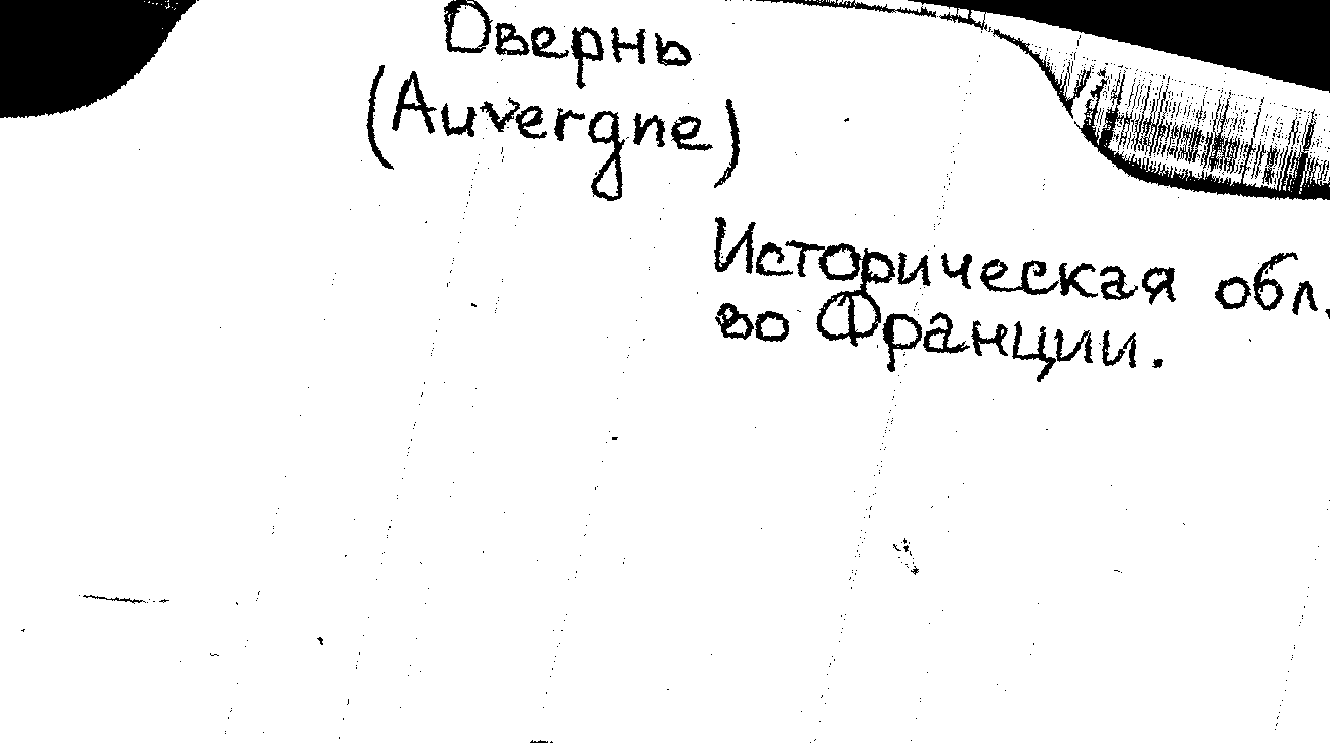 Овернь
(Auvergne)
Историческая обл.
во Франции.